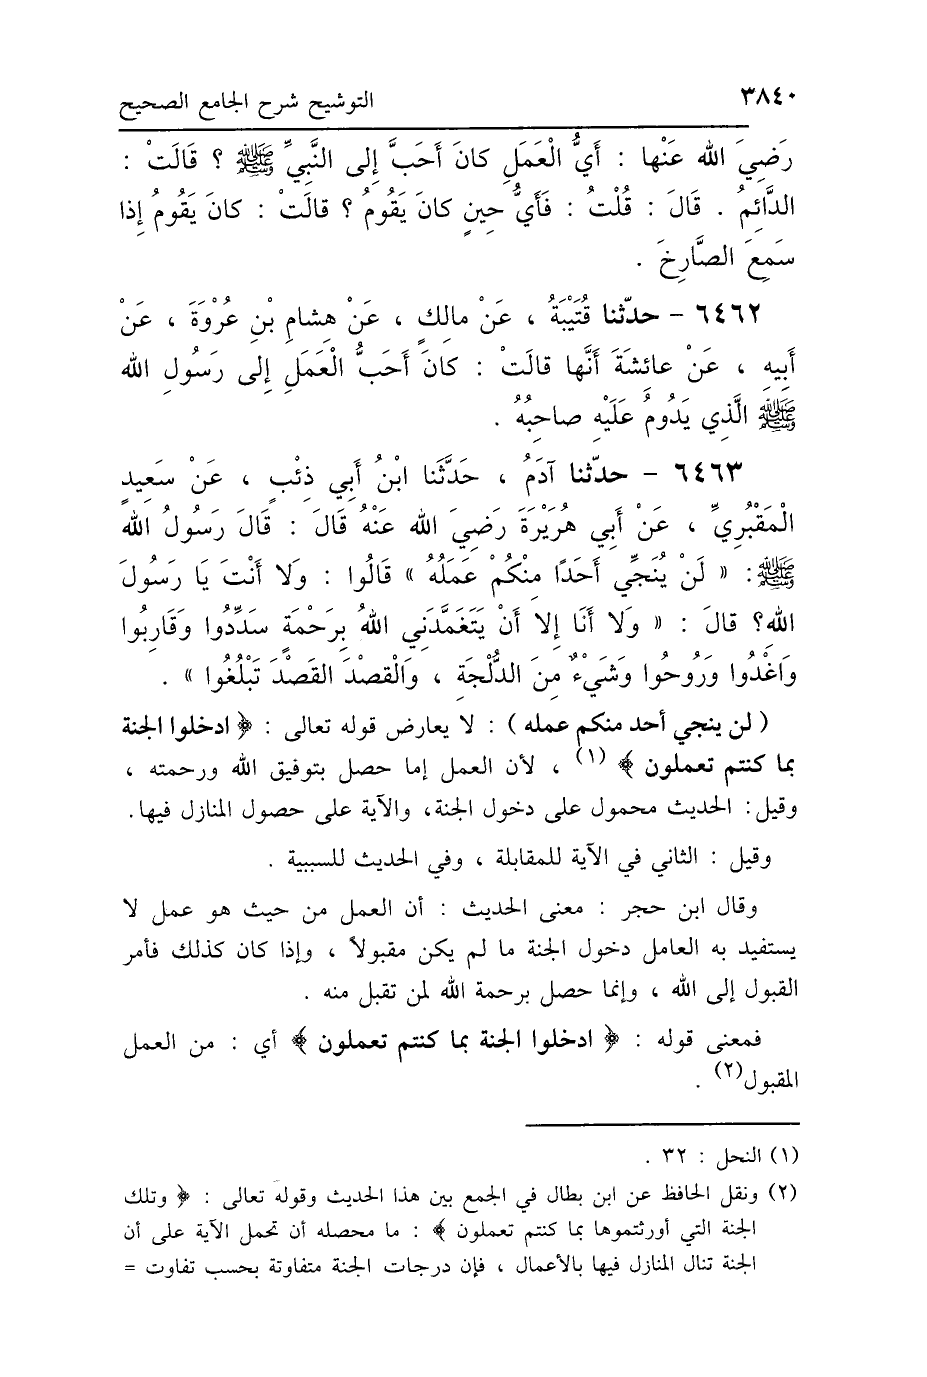 ٣٨٤٠ التوشيح شرح الجامع الصحيح
رَضِيَ الله عَنْها : أَيُّ الْعَمَلِ كانَ أَحَبَّ إلى النَّبِيِّ ﷺ ؟ قَالَتْ :
الدَّائِمُ . قَالَ : قُلْتُ : فَأَيُّ حِينٍ كانَ يَقُومُ ؟ قالَتْ : كانَ يَقُومُ إذا
سَمِعَ الصَّارِخَ .
٦٤٦٢ - حدّثنا قُتَيْبَةُ ، عَنْ مالِكٍ ، عَنْ هِشامِ بْنِ عُرْوَةَ ، عَنْ
أَبِيهِ ، عَنْ عائِشَةَ أَنَّها قالَتْ : كانَ أَحَبُّ الْعَمَلِ إلى رَسُولِ الله
ﷺ الَّذِي يَدُومُ عَلَيْهِ صاحِبُهُ .
٦٤٦٣ - حدّثنا آدَمُ ، حَدَّثَنا ابْنُ أَبِي ذِئْبٍ ، عَنْ سَعِيدٍ
الْمَقْبُرِيِّ ، عَنْ أَبِي هُرَيْرَةَ رَضِيَ الله عَنْهُ قَالَ : قَالَ رَسُولُ الله
ﷺ: « لَنْ يُنَجِّيَ أَحَدًا مِنْكُمْ عَمَلُهُ » قَالُوا : وَلا أَنْتَ يَا رَسُولَ
الله؟ قالَ : « وَلا أَنا إلا أَنْ يَتَغَمَّدَنِي اللهُ بِرَحْمَةٍ سَدِّدُوا وَقَارِبُوا
وَاغْدُوا وَرُوحُوا وَشَيْءٌ مِنَ الدُّلْجَةِ ، وَالْقَصْدَ القَصْدَ تَبْلُغُوا » .
( لن ينجي أحد منكم عمله ) : لا يعارض قوله تعالى : ﴿ ادخلوا الجنة
بما كنتم تعملون ﴾ (١) ، لأن العمل إما حصل بتوفيق الله ورحمته ،
وقيل: الحديث محمول على دخول الجنة، والآية على حصول المنازل فيها.
وقيل : الثاني في الآية للمقابلة ، وفي الحديث للسببية .
وقال ابن حجر : معنى الحديث : أن العمل من حيث هو عمل لا
يستفيد به العامل دخول الجنة ما لم يكن مقبولاً ، وإذا كان كذلك فأمر
القبول إلى الله ، وإنما حصل برحمة الله لمن تقبل منه .
فمعنى قوله : ﴿ ادخلوا الجنة بما كنتم تعملون ﴾ أي : من العمل
المقبول(٢) .
(١) النحل : ٣٢ .
(٢) ونقل الحافظ عن ابن بطال في الجمع بين هذا الحديث وقوله تعالى : ﴿ وتلك
الجنة التي أورثتموها بما كنتم تعملون ﴾ : ما محصله أن تحمل الآية على أن
الجنة تنال المنازل فيها بالأعمال ، فإن درجات الجنة متفاوتة بحسب تفاوت =